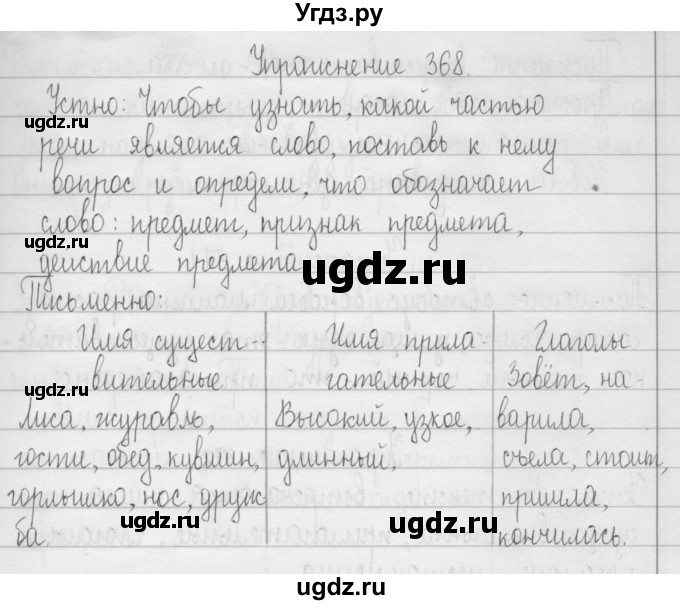 Угдз.ру
Упражнение 368.
Устно: Чтобы узнать, какой частью
ugdz.ru
речи является слово, поставь к нему
ugdz.ru
вопрос и определи, что обозначает
слово: предмет, признак предмета,
ugdz.ru
действие предмета
ugdz.ru
Письменно:
Имя сущест-
вительные
ugdz.ru
Лиса, журавль,
гости, обед, кувшин,
горлышко, нос, друж-
ugdz.ru
ба.
Имя прила-
гательные
Высокий, узкое,
длинный,
ugdz.ru
Глаголы
Зовёт, на-
варила,
ugdz.ru
съела, стоит,
пришла,
ugdz.ru
кончилась.
ugdz.ru